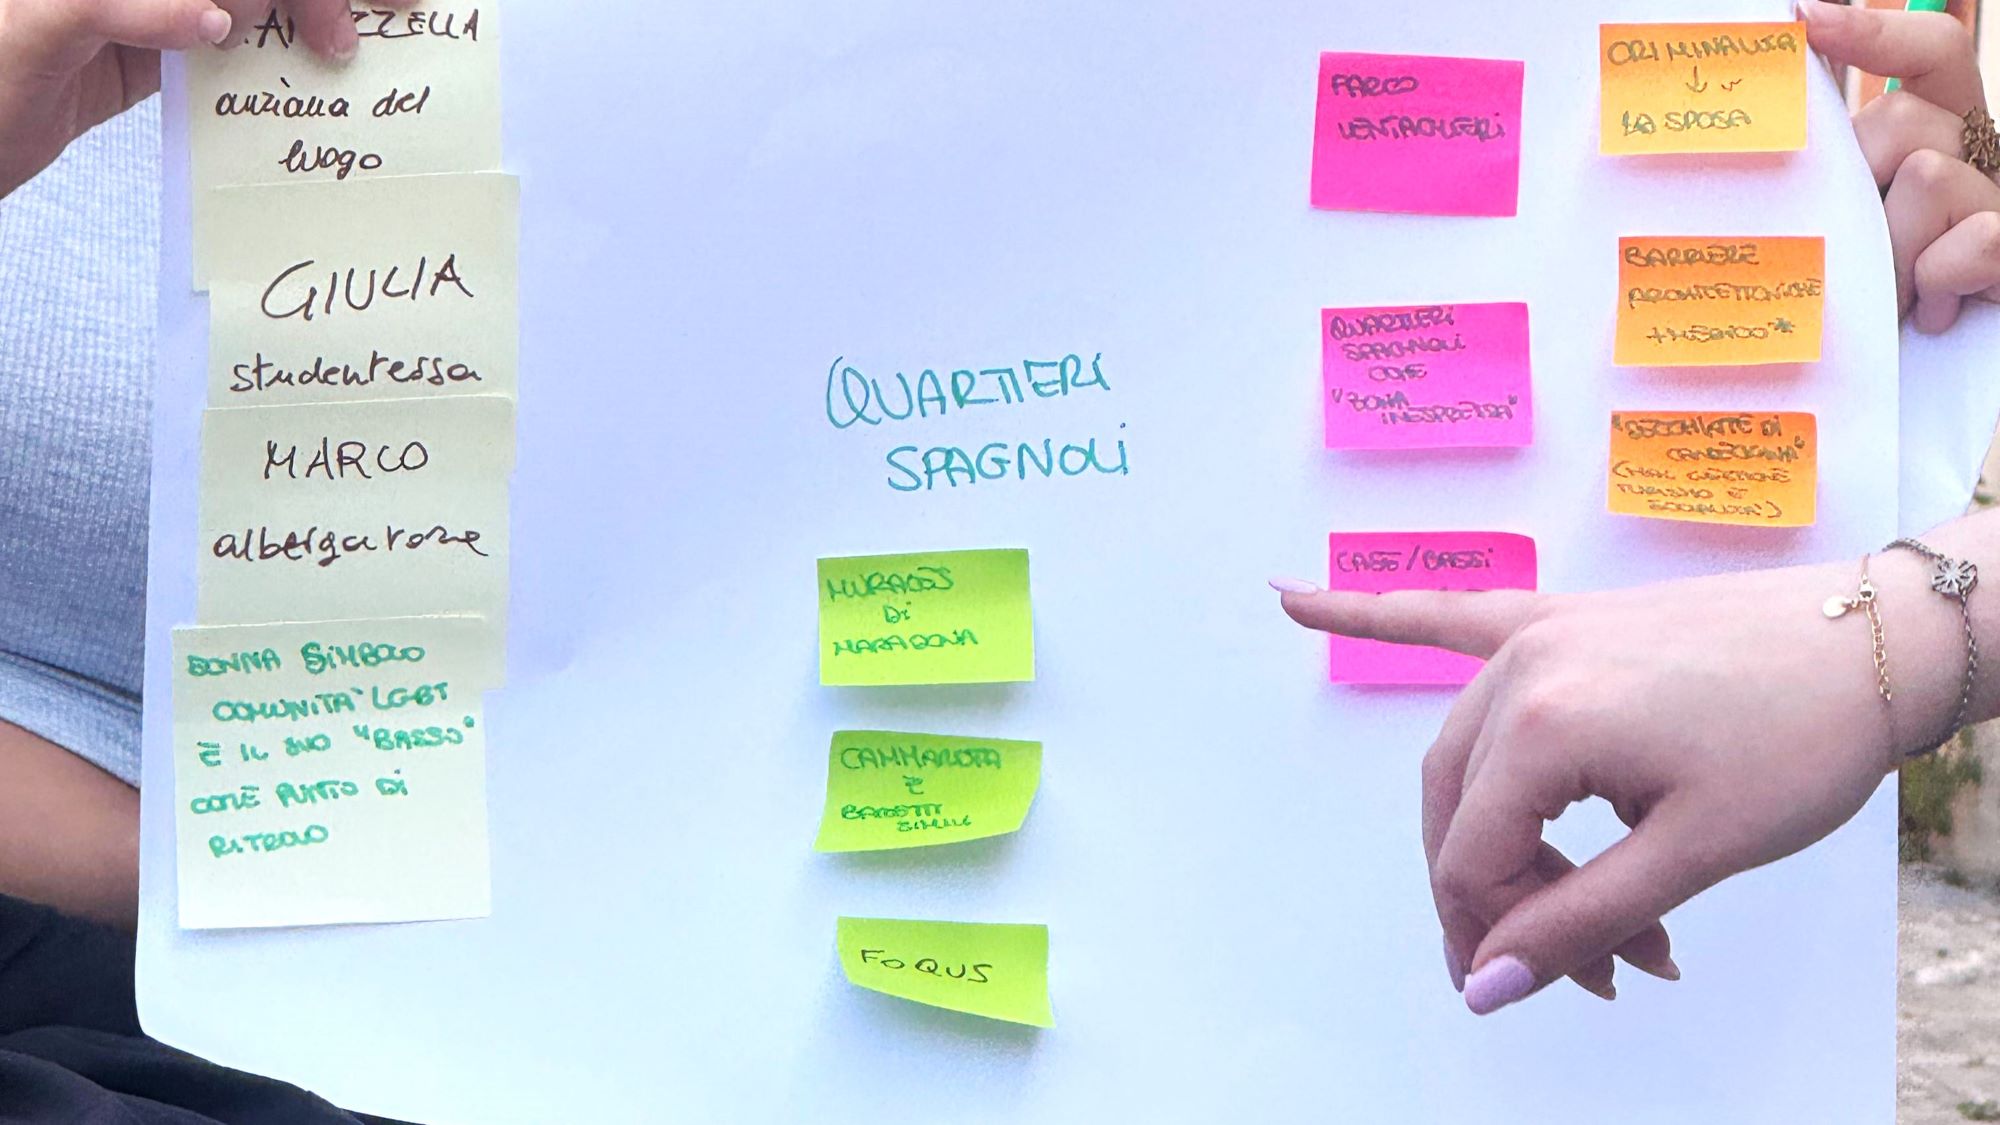 anziana del
luogo
GIULIA
studentessa
MARCO
albergatore
DONNA SIMBOLO
COMUNITA' LGBT
E IL SUO "BASSO"
COME PUNTO DI
RITROVO
QUARTIERI
SPAGNOLI
MURALES
DI
MARADONA
CAMMAROTA
E
BARETTI
SIMILI
FOQUS
PARCO
VENTAGLIERI
QUARTIERI
SPAGNOLI
COME
"ZONA
INESPRESSA"
CASE/BASSI
CRIMINALITA
↓
LA SPOSA
BARRIERE
ARCHITETTONICHE
"SECCHIATE DI
CANDEGGINA"
(MAL GESTIONE
TURISMO E
SOCIALITA')